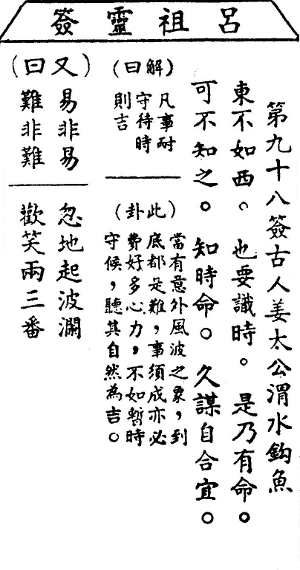 呂祖靈簽
第九十八簽古人姜太公渭水鈎魚
東不如西。也要識時。是乃有命。
可不知之。知時命。久謀自合宜。
(解曰)
凡事耐
守待時
則吉
(此卦)
當有意外風波之象,到
底都是難,事須成亦必
費好多心力,不如暫時
守候,聽其自然為吉。
(又曰)
易非易
難非難
忽地起波瀾
歡笑兩三番